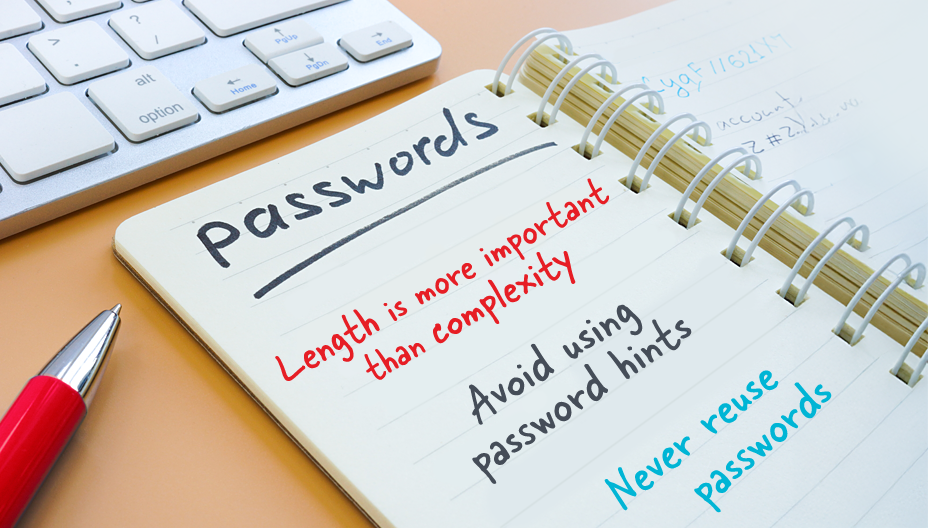 PgUp
End
PgDn
Home
alt
option
Passwords
Length is more important
than complexity
Avoid using
password hints
Never reuse
passwords
account